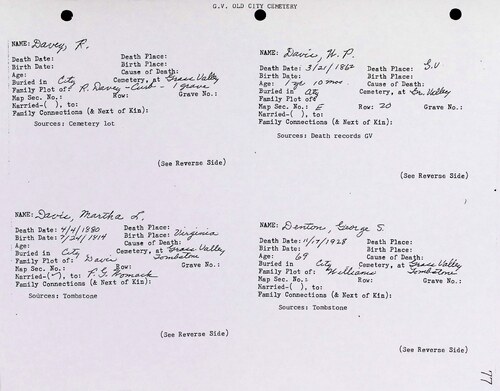 G.V. OLD CITY CEMETERY
NAME: Davey, R.
Death Date: Death Place:
Birth Date: Birth Place:
Age: Cause of Death:
Buried in City Cemetery, at Grass Valley
Family Plot of: R. Davey - Curb - 1 grave
Map Sec. No.: Row: Grave No.:
Married-( ), to:
Family Connections (& Next of Kin):
Sources: Cemetery lot
(See Reverse Side)
NAME: Davis, W. P.
Death Date: 3/21/1862 Death Place: G.V
Birth Date: Birth Place:
Age: 1 yr 10 mos. Cause of Death:
Buried in City Cemetery, at Gr. Valley
Family Plot of:
Map Sec. No.: E Row: 20 Grave No.:
Married-( ), to:
Family Connections (& Next of Kin):
Sources: Death records GV
(See Reverse Side)
NAME: Davis, Martha L.
Death Date: 4/4/1880 Death Place:
Birth Date: 7/24/1814 Birth Place: Virginia
Age: Cause of Death:
Buried in City Cemetery, at Grass Valley
Family Plot of: Davis Tombstone
Map Sec. No.: Row: Grave No.:
Married-(✓), to: P. G. Womack
Family Connections (& Next of Kin):
Sources: Tombstone
(See Reverse Side)
NAME: Denton, George S.
Death Date: 11/17/1928 Death Place:
Birth Date: Birth Place:
Age: 69 Cause of Death:
Buried in City Cemetery, at Grass Valley
Family Plot of: Williams Tombstone
Map Sec. No.: Row: Grave No.:
Married-( ), to:
Family Connections (& Next of Kin):
Sources: Tombstone
(See Reverse Side)
77